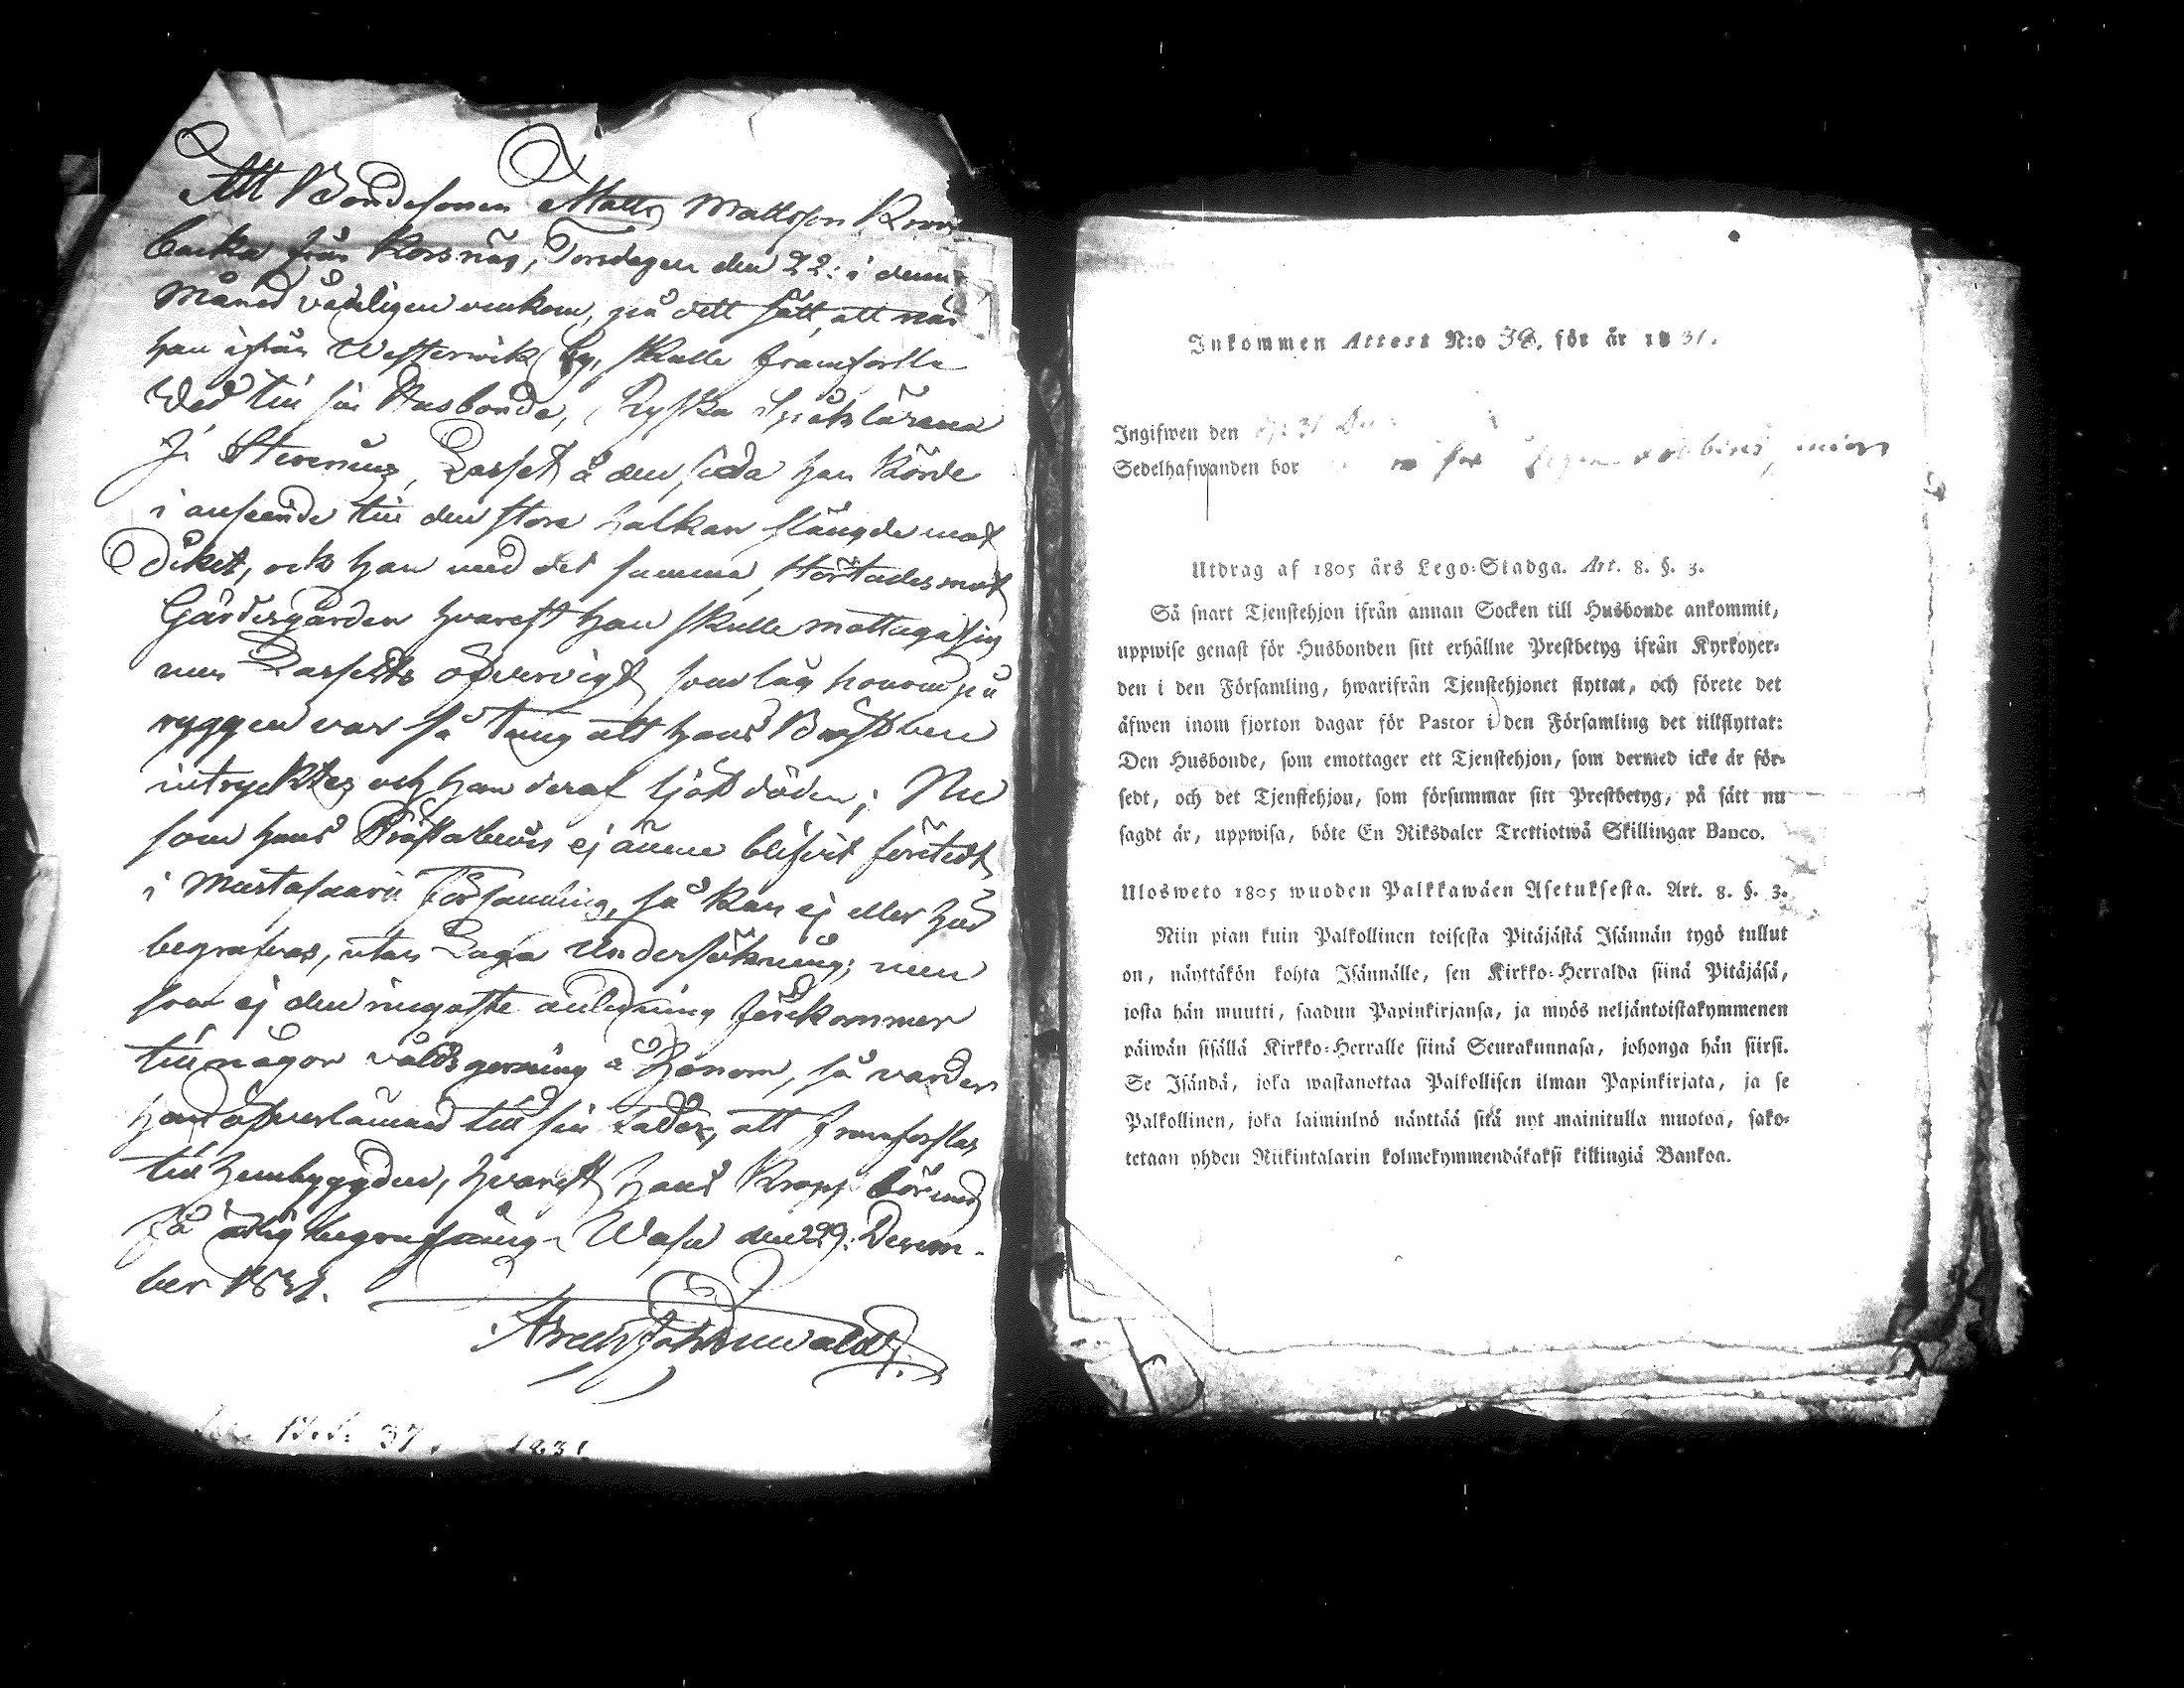 Att Bondesonen Matts Mattsson
backa från Korsnäs, Torsdagen den 22: i denna
Månad vådligen omkom, på dett sätt, att när
han ifrån Westerwik by, skulle framforsla
Wed till sin Husbonde, Ryska Språkläraren
J: Stirenius, Lasset å den sida han körde
i anseende till den stora halkan slängde mot
diket, och han med det samma störtades mot
Gärdesgården hvarest han skulle mottaga sig
men Lassets öfvervigt som låg honom på
ryggen var så tung att hans Bröstben
intrycktes och han deraf ljöt döden; Nu
som hans Prästabevis ej ännu blifvit företedt
i Mustasaari Församling, så kan ej eller här
begrafvas, utan Laga Undersökning; men
som ej den ringaste anledning förekommer
till någon våldsgerning å honom, så varder
han öfverlämnad till sin Fader, att framforslas
till hembygden, hvarest hans Kropp bör med
få ärlig begrafning. Wasa den 29: Decem-
ber 1831.
37. 1831
Inkommen Attest N:o 38. för år 1831.
Ingifwen den 31 Dec
Sedelhafwanden bor
Utdrag af 1805 års Lego-Stadga. Art. 8. §. 3.
Så snart Tjenstehjon ifrån annan Socken till Husbonde ankommit,
uppwise genast för Husbonden sitt erhållne Prestbetyg ifrån Kyrkoher-
den i den Församling, hwarifrån Tjenstehjonet flyttat, och förete det
äfwen inom fjorton dagar för Pastor i den Församling det tillflyttat:
Den Husbonde, som emottager ett Tjenstehjon, som dermed icke är för-
sedt, och det Tjenstehjon, som försummar sitt Prestbetyg, på sätt nu
sagdt är, uppwisa, böte En Riksdaler Trettiotwå Skillingar Banco.
Ulosweto 1805 wuoden Palkkawäen Asetuksesta. Art. 8. §. 3.
Niin pian kuin Palkollinen toisesta Pitäjästä Isännän tygö tullut
on, näyttäkön kohta Isännälle, sen Kirkko-Herralda siinä Pitäjäsä,
josta hän muutti, saadun Papinkirjansa, ja myös neljäntoistakymmenen
päiwän sisällä Kirkko-Herralle siinä Seurakunnasa, johonga hän siirsi.
Se Isändä, joka wastanottaa Palkollisen ilman Papinkirjata, ja se
Palkollinen, joka laiminlyö näyttää sitä nyt mainitulla muotoa, sako-
tetaan yhden Riikintalarin kolmekymmendäkaksi killingiä Bankoa.